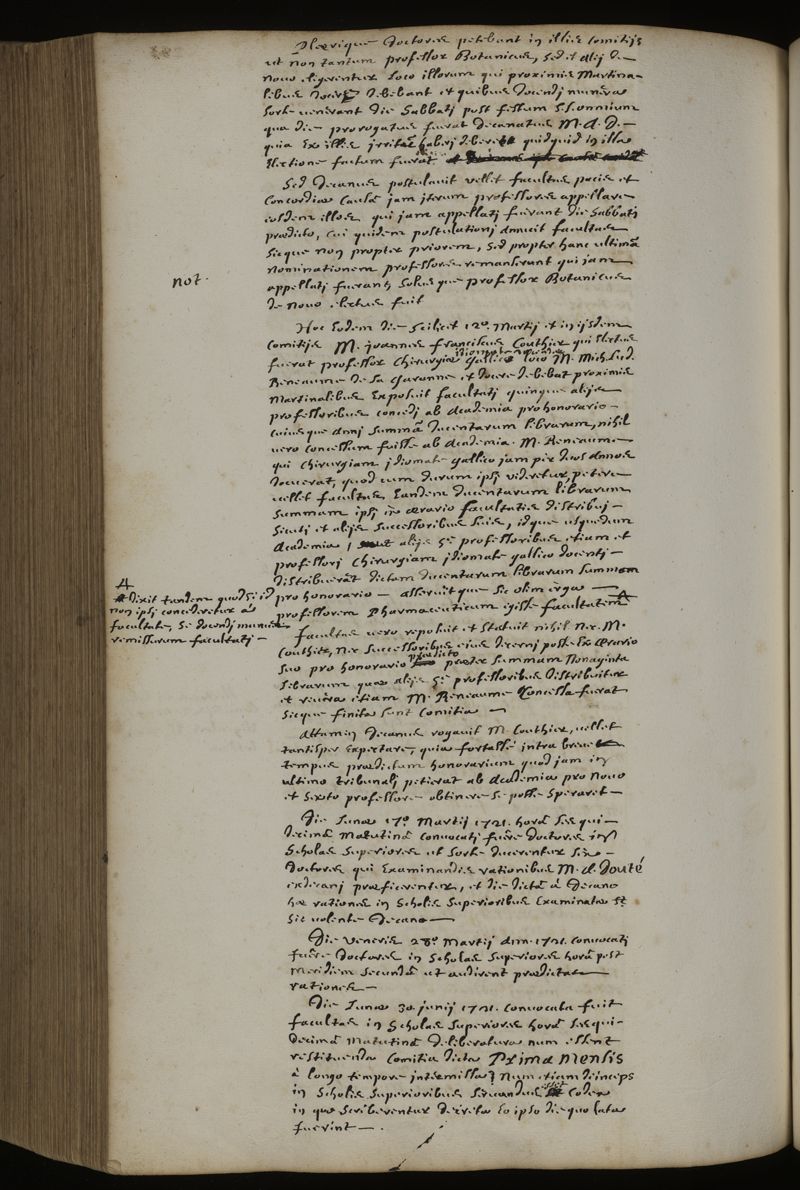 Plærique doctores petebant in illis comitijs
ut non tantum professor Botanicus, sed et alij de
novo eligerentur loco illorum qui proximis Martina-
libus docere debebant et quibus docendj munera
sorte venerant die Sabbatj post festum S.S. omnium
qua die prorogatus fuerat decanatus M. d. D.
quia ex illis irrita haberj deberet quidquid in illa
Electione factum fuerat
Sed decanus postulavit vellet facultas pacis et
concordiæ causa jam iterum professores appellare
eosdem illos qui jam appellatj fuerant die Sabbatj
prædicto, cui quidem postulationj annuit facultas
sicque non propter priorem, sed propter hanc ultimã
nominationem professores remanserunt qui jam
appellatj fuerant, solusque professor Botanicus
de novo electus fuit
not.
Hoc Eodem die scilicet 12ª Martij et in ijsdem
comitijs M. joannes franciscus Couthier qui electus
fuerat professor chirurgiæ idiomate gallico loco M. Mich. Lud.
Reneaume de la Garanne et docere debebat proximis
Martinalibus Exposuit facultatj quinque alijs
professoribus concedj ab academia pro honorario
cuiusque annj summã ducentarum librarum, nihil
vero concessum fuisse ab academia M. Reneaume
qui chirurgiam idiomate gallico jam per duos annos
docuerat, quod cum durum ipsj videretur, petere
vellet facultas Eandem ducentarum librarum
summam ipsj in ærario facultatis distribuj
sicuti et alijs successoribus suis, idque usquedum
academia, alijs 5e professoribus etiam et
professorj chirurgiam idiomate gallico docentj
distribuerãt dictam ducentarum librarum summam
pro honorario asseruit que sic olim erga
professorem Pharmaceuticum egisse facultatem
A
dixit tandem quod si id
non ipsj concederetur a
facultate, se docendj munus
remissurum facultatj
facultas vero reposuit et statuit nihil nec M.
Couthier, nec successoribus ejus decernj posse Ex ærario
suo pro honorario prædicto præter summam nonaginta
librarum quæ alijs 5e professoribus distribuitur
et revera etiam M. Reneaume concessa fuerat
sicque finita sunt Comitia
Attamen decanus rogavit M. Couthier, vellet
tantisper expectare, quia fortasse intra breve
tempus prædictum honorarium quod jam in
ultimo tribunalj petierat ab academia pro novo
et sexto professore obtinere se posse speraret
Die Lunæ 17ª Martij 1721. hora sesqui-
decima matutina convocatj fuere doctores in
scholas superiores ut sorte ducerentur sex
doctores qui Examinandis rationibus M. d. Douté
exdecanj præficerentur, et die dicta a decano
hæ rationes in scholis superioribus Examinatæ st
sic volente decano
Die veneris 28ª Martij ann. 1721. convocatj
fuere doctores in scholas superiores hora post
meridiem secunda ut audirent prædictas
rationes
Die Lunæ 30 junij 1721. convocata fuit
facultas in scholas superiores hora sesqui-
decima matutina deliberatura num essent
restituenda comitia dicta Prima Mensis
a longo tempore intermissa? Num etiam deinceps
in scholis superioribus servandus sit codex
in quo scriberentur decreta eo ipso die quo lata
fuerint